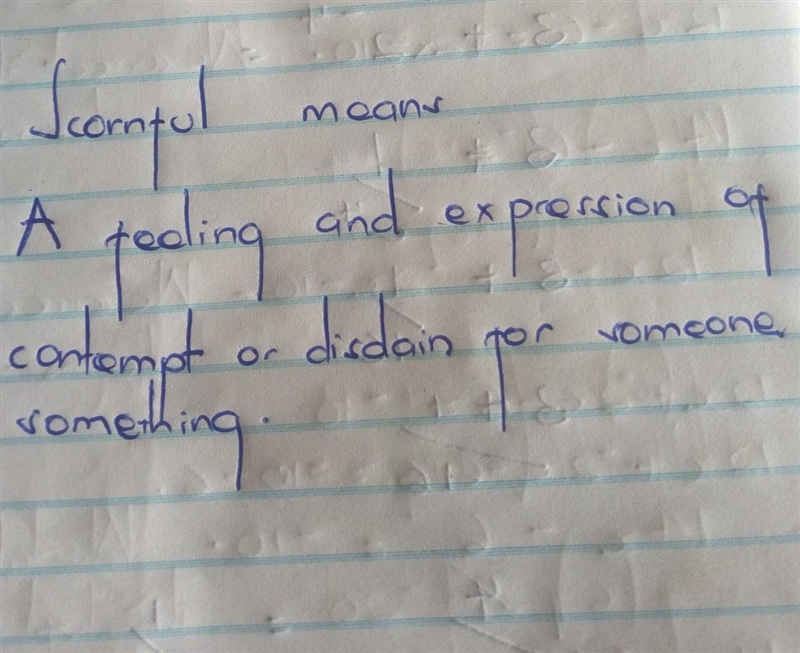 Scornful means
A feeling and expression of
contempt or disdain for someone
something.